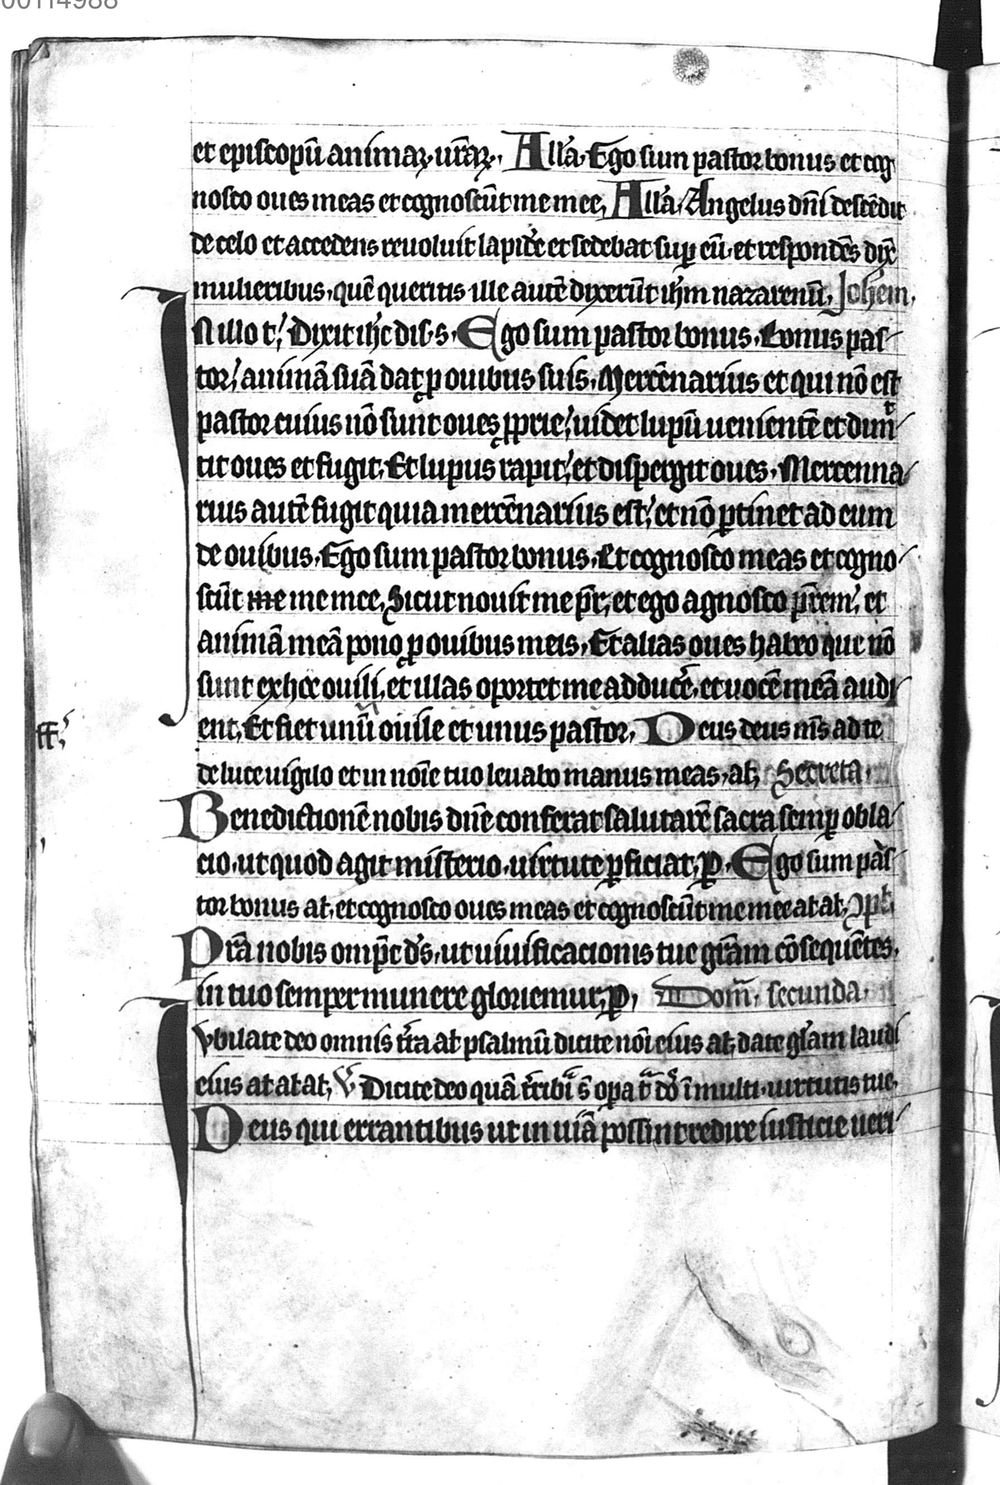 00114988
et episcopū animaꝝ urāꝝ. All'a. Ego sum pastor bonus et cog
nosco oues meas et cognoscūt me mee, All'a. Angelus dn̄i descēdit
de celo et accedens reuoluit lapidē et sedebat sup̄ eū. et respondēs dix̄
mulieribus. quē queritis ille autē dixerūt ih̄m nazarenū. Joh'em.
IN illo t'. Dixit ih̄c dis. s. Ego sum pastor bonus. Bonus pas
tor. animā suā dat ꝓ ouibus suis. Mercēnarius et qui nō est
pastor cuius nō sunt oues ꝓprie. uidet lupū uenientē et dimit
tit oues et fugit. Et lupus rapit. et dispergit oues. Mercenna
rius autē fugit quia mercēnarius est. et nō ꝑtinet ad eum
de ouibus. Ego sum pastor bonus. Et cognosco meas et cogno
scūt me me mee, Sicut nouit me pr̄, et ego agnosco pr̄em. et
animā meā pono ꝓ ouibus meis. Et alias oues habeo que nō
sunt ex hoc ouili, et illas oportet me adducē. et uocē meā audi
ent, Et fiet unū ouile et unus pastor, Deus deus ms̄ ad te
ff.
de luce uigilo et in noīe tuo leuabo manus meas. aƚ, Secreta.
Benedictionē nobis dn̄e conferat salutarē sacra semp̄ obla
cio. ut quod agit misterio. uirtute ꝑficiat, ꝑ. Ego sum pas
tor bonus aƚ, et cognosco oues meas et cognoscūt me mee aƚ aƚ,
Prā nobis omp̄c ds̄. ut uiuificacionis tue grām cōsequētes.
in tuo semper munere gloriemur, ꝑ, Dom̄. secunda.
IVbilate deo omnis t'ra aƚ psalmū dicite noī eius aƚ, date gl'am laudi
eius aƚ aƚ aƚ, V. Dicite deo quā t'ribi' s̄ opa t̄ dō ī multi. uirtutis tue.
Deus qui errantibus ut in uiā possint redire iusticie ueri